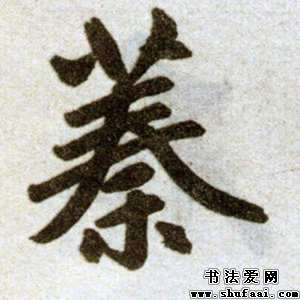 蓁
书法爱网
www.shufaai.com